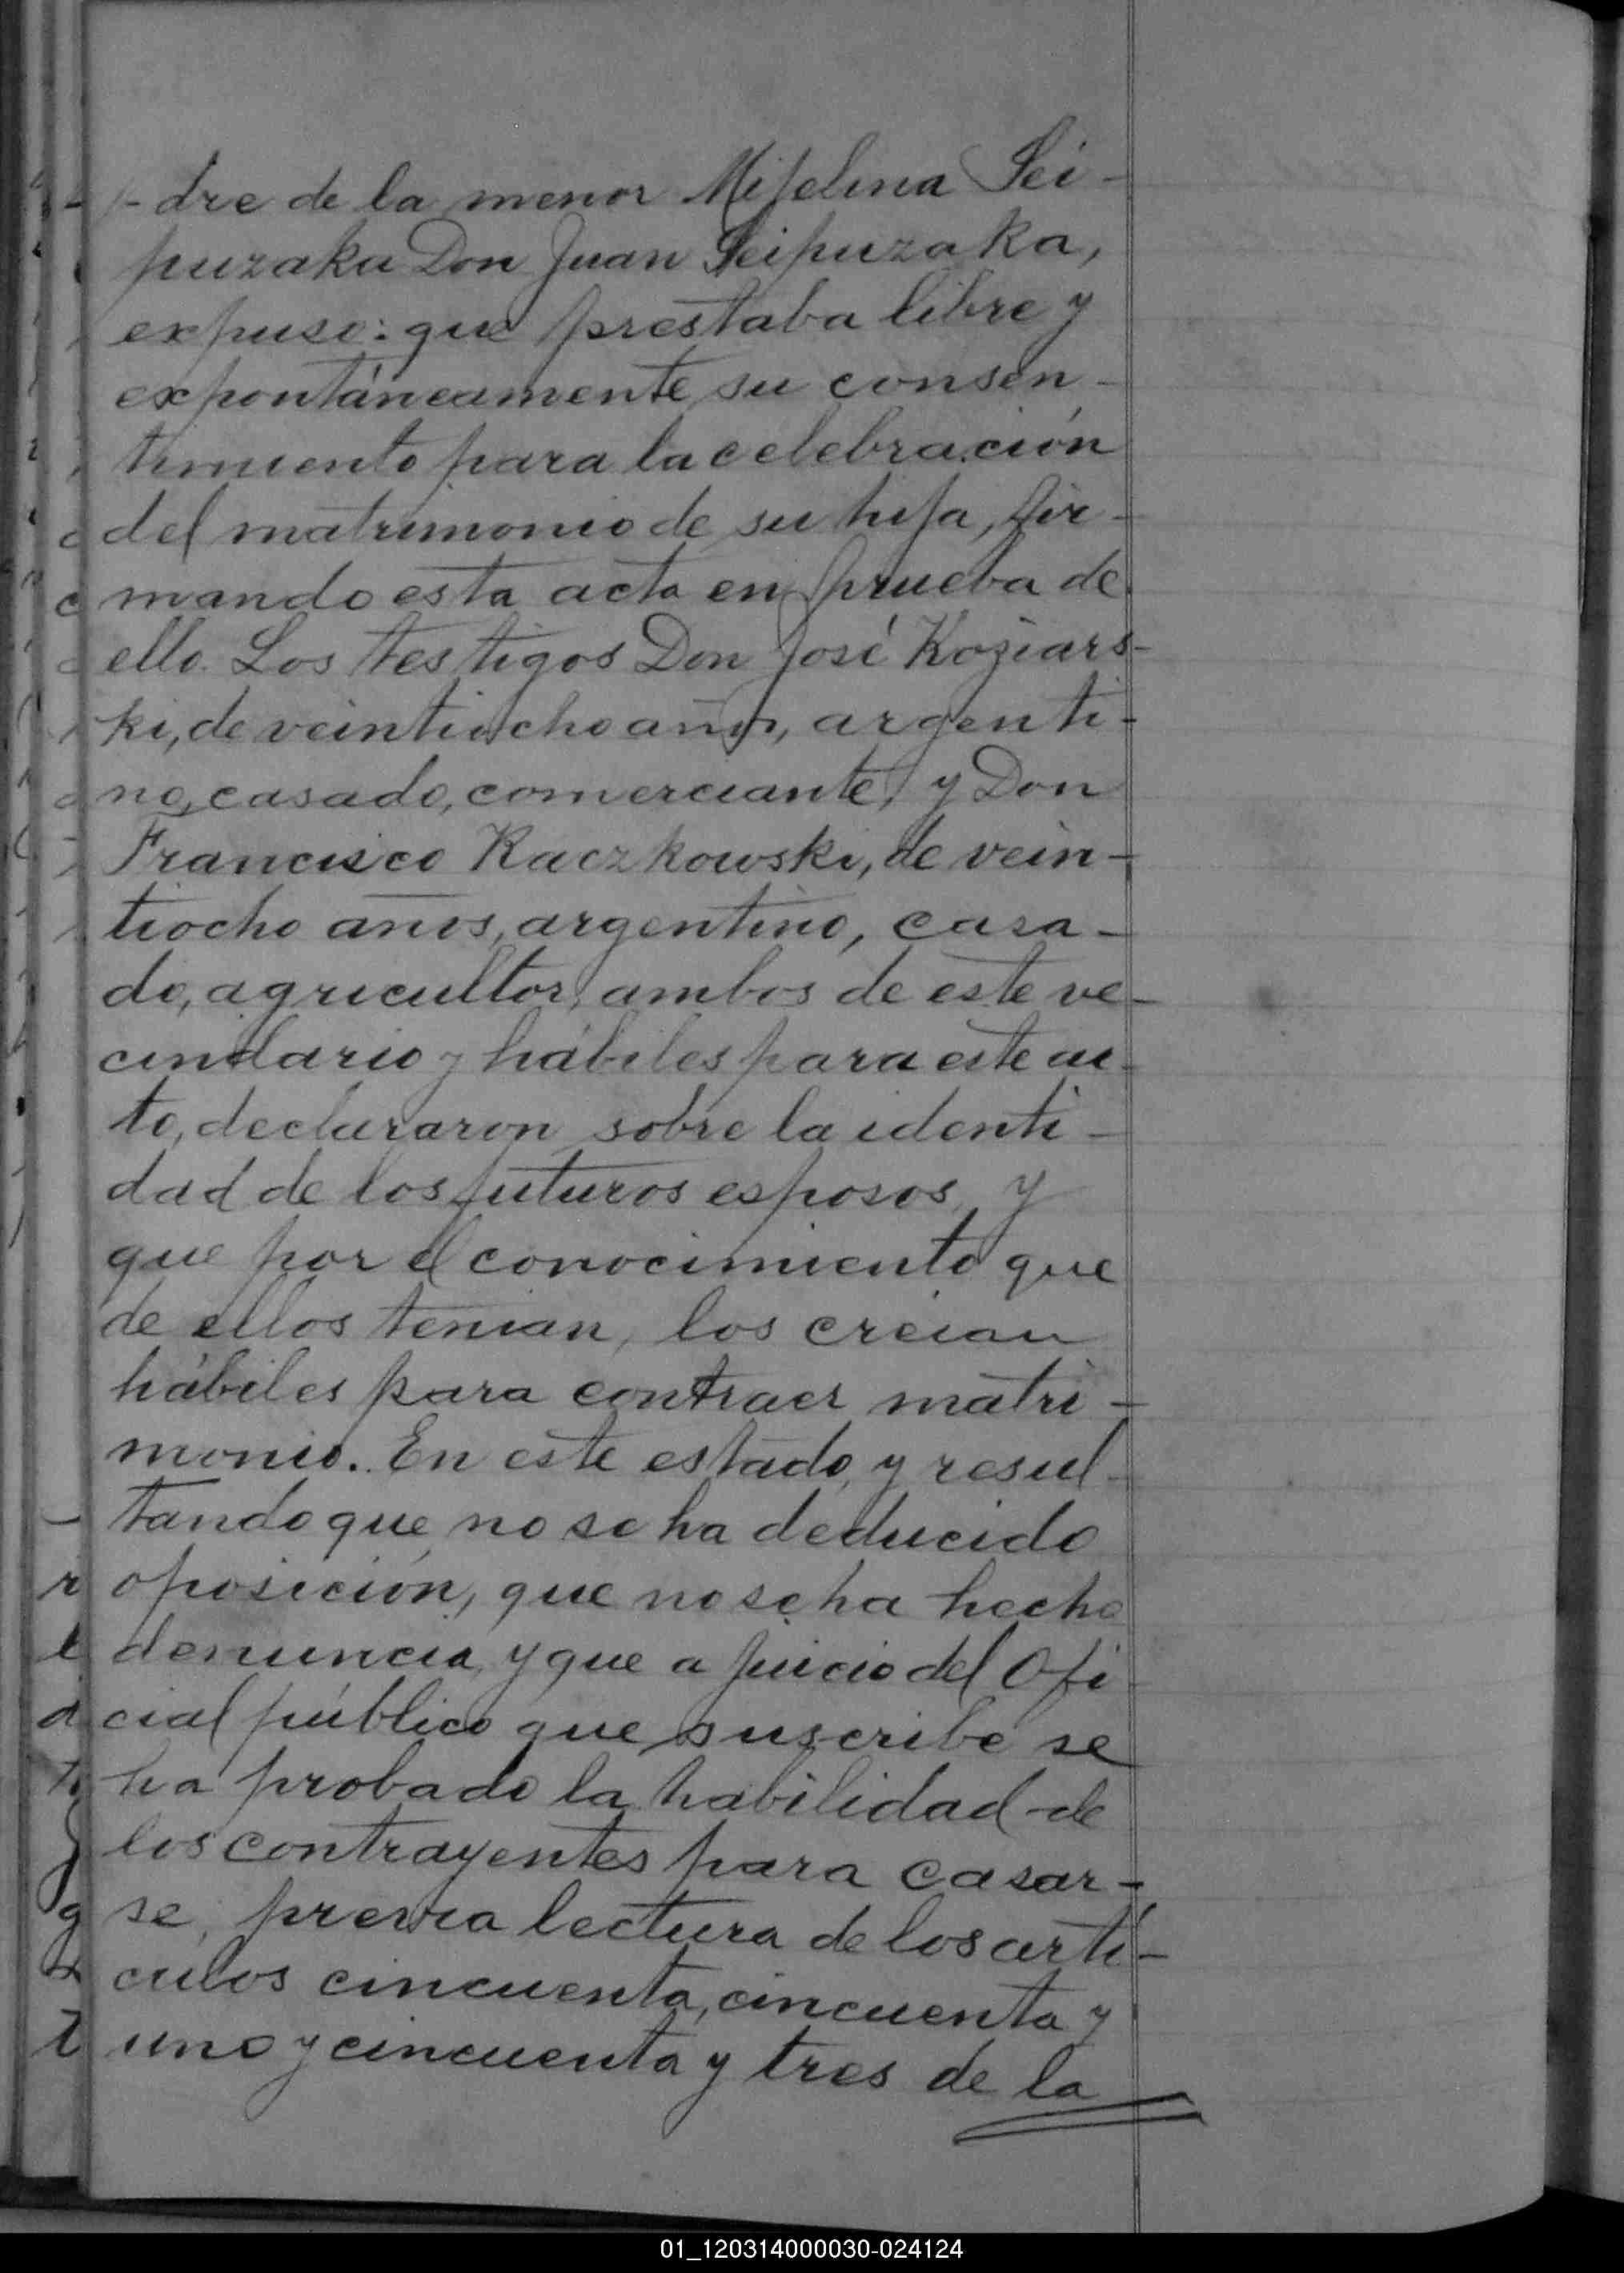 -dre de la menor Mijelina Sei-
puzaka Don Juan Seipuzaka,
expuso: que prestaba libre y
expontáneamente su consen-
timiento para la celebración
del matrimonio de su hija, fir-
mando esta acta en prueba de
ello. Los testigos Don José Koziars-
ki, de veintiocho años, argenti-
no, casado, comerciante, y Don
Francisco Kaczkowski, de vein-
tiocho años, argentino, casa-
do, agricultor, ambos de este ve-
cindario y hábiles para este ac-
to, declararon sobre la identi-
dad de los futuros esposos, y
que por el conocimiento que
de ellos tenian, los creian
hábiles para contraer matri-
monio. En este estado, y resul-
tando que no se ha deducido
oposición, que no se ha hecho
denuncia, y que a juicio del Ofi
cial público que suscribe se
ha probado la habilidad de
los contrayentes para casar-
se, previa lectura de los artí-
culos cincuenta, cincuenta y
uno y cincuenta y tres de la
01_120314000030-024124